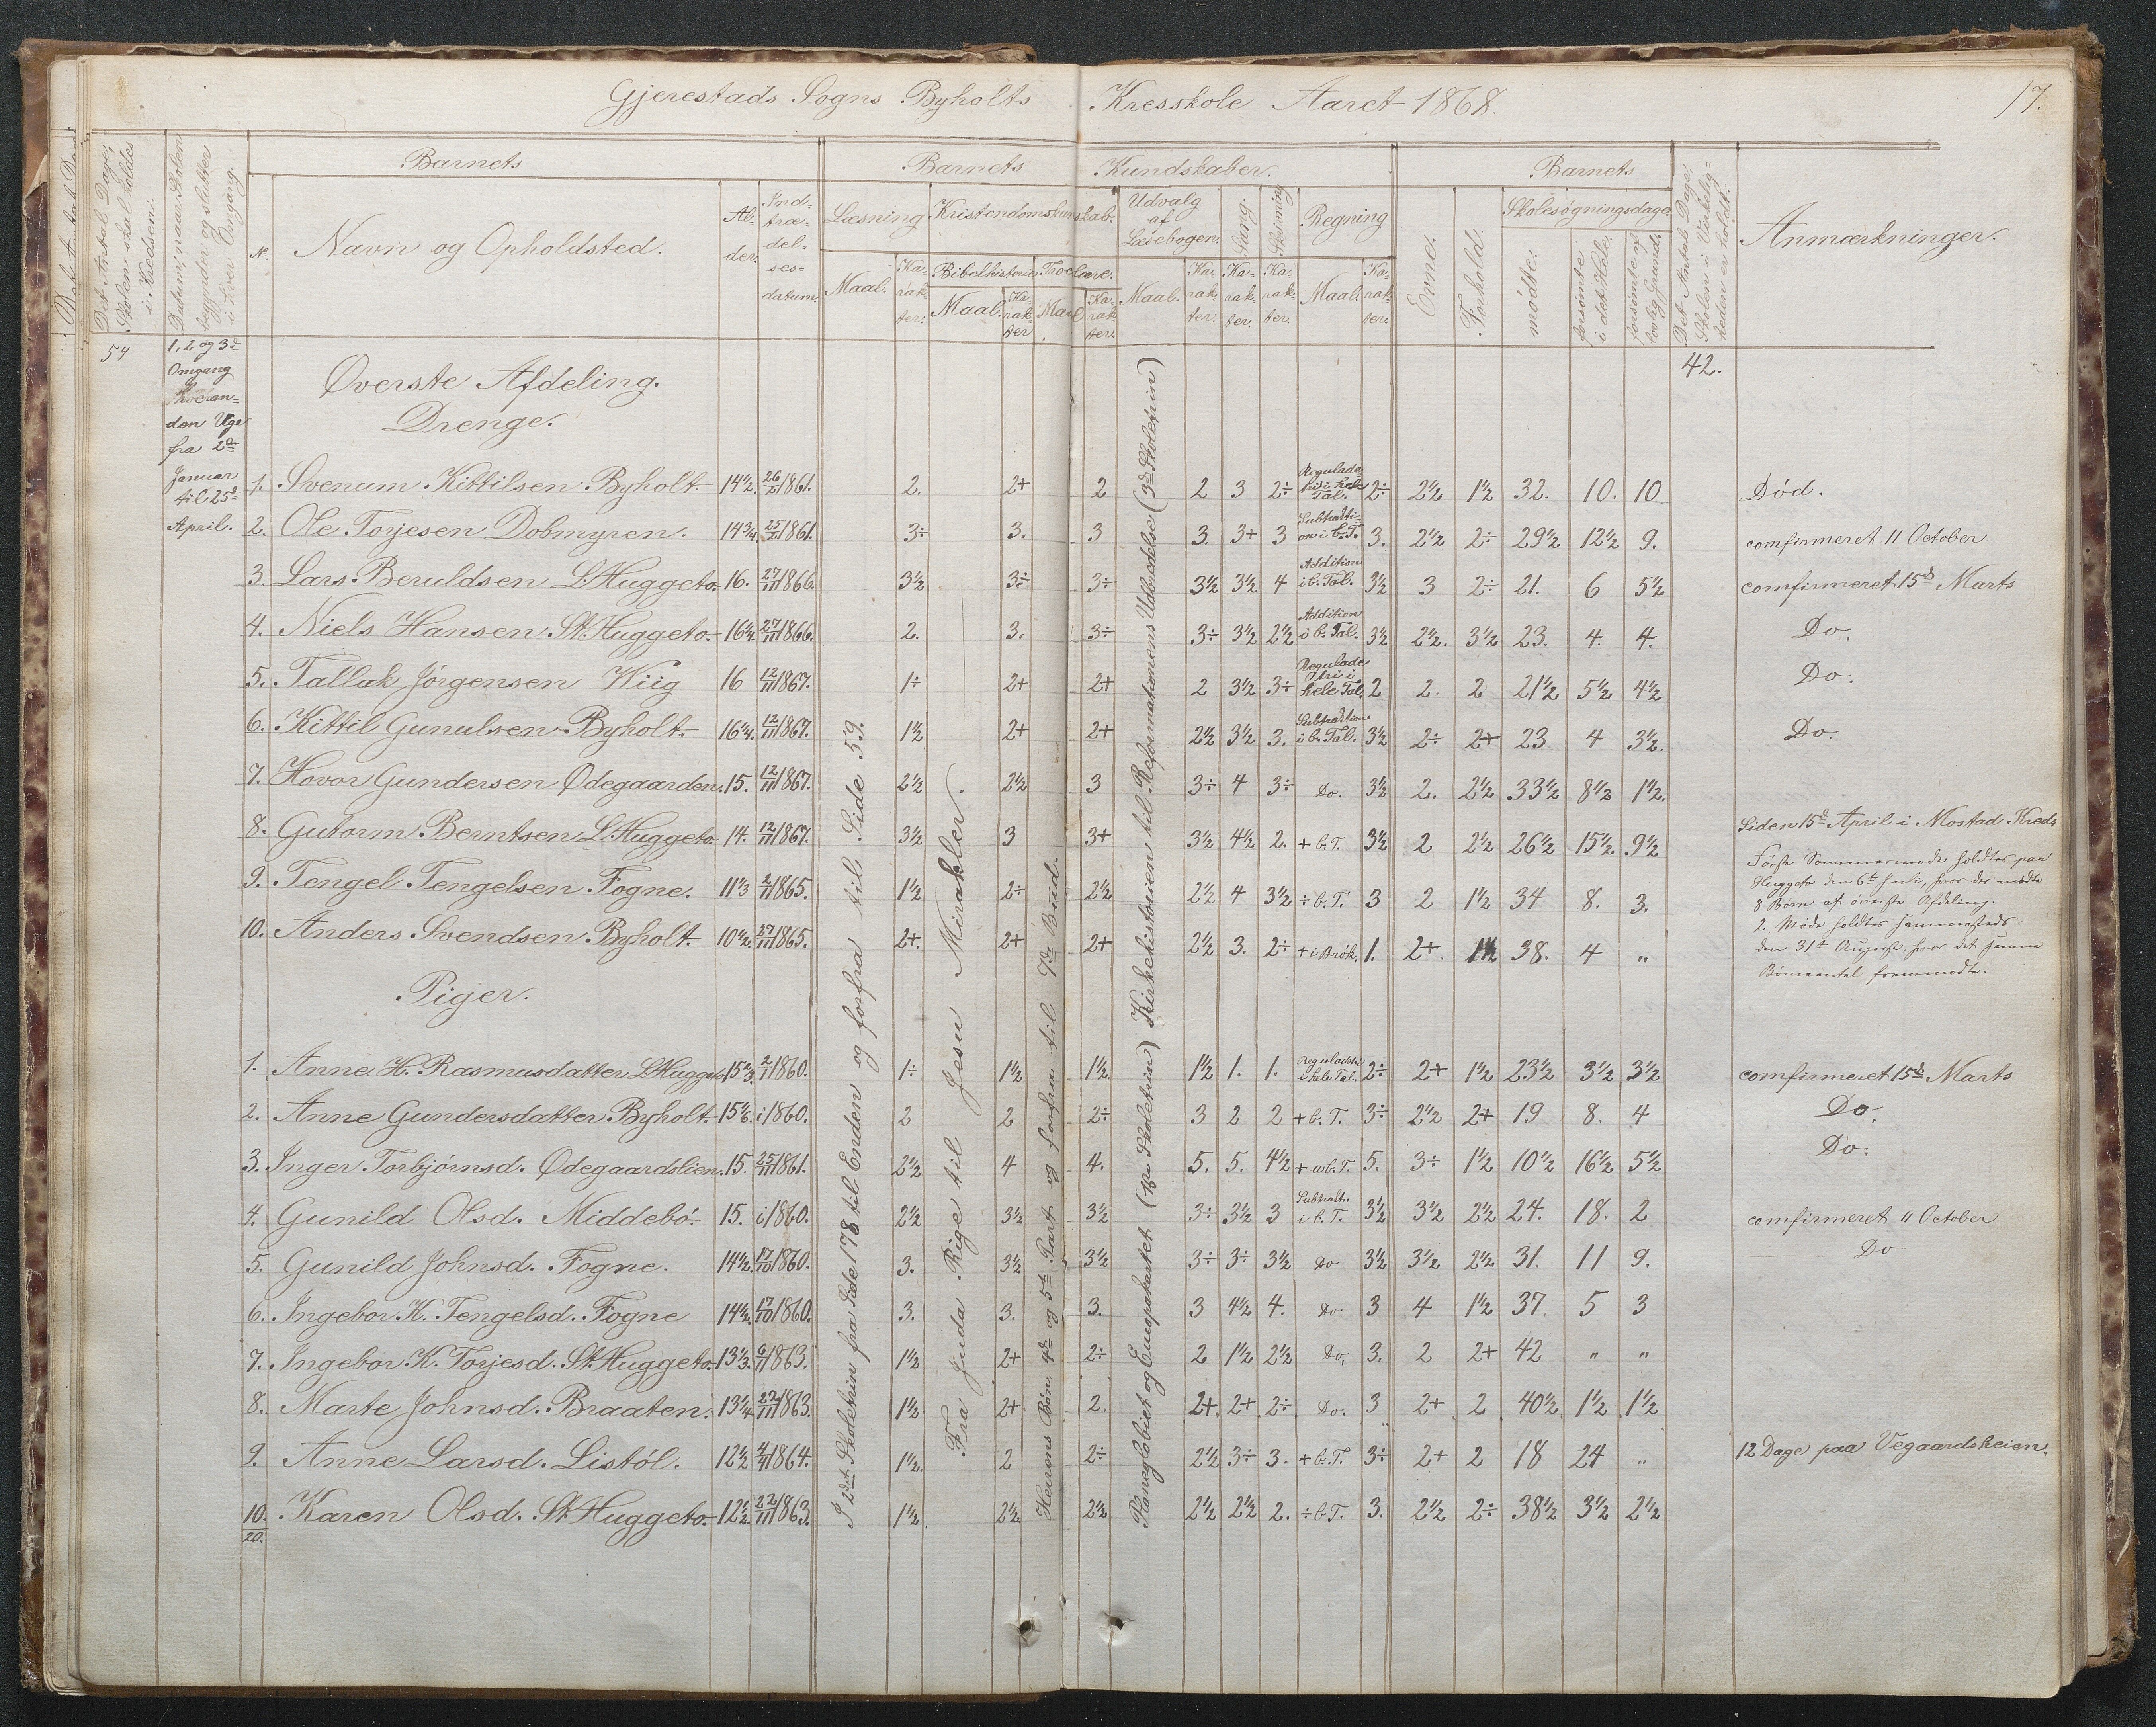 Gjerestads Sogns Byholts Kresskole Aaret 1868. 17.
Det Antal Dage, Skolen skal holdes i Kredsen.
Datum, naar Skolen begynder og slutter i hver Omgang.
Barnets
Barnets Kundskaber.
Barnets
Det Antal Dage, Skolen i Virkeligheden er holdt.
Anmærkninger.
No. Navn og Opholdsted. Alder. Indtrædelsesdatum.
Læsning Kristendomskundskab. Udvalg af Læsebogen. Sang. Skrivning Regning
Evne. Forhold. Skolesøgningsdage.
Bibelhistorie Troeslære.
Maal. Karakter. Maal. Karakter Maal Karakter. Maal. Karakter. Karakter. Karakter. Maal. Karakter.
mødte. forsømte i det Hele. forsømte af lovlig Grund.
54 1, 2 og 3die Omgang hveranden Uge fra 2den Januar til 25de April. 42.
Øverste Afdeling.
Drenge.
1. Svenum Kittilsen Byholt. 14½. 26/2 1861. 2. 2+ 2 2 3 2÷ Reguladetri i hele Tal. 2÷ 2½ 1½ 32. 10. 10 Død.
2. Ole Torjesen Dobmyren. 14¾. 25/2 1861. 3÷ 3. 3 3. 3+ 3 Subtraktion i b. T. 3. 2½ 2÷ 29½ 12½ 9. comfirmeret 11 October.
3. Lars Beruldsen L. Huggeto. 16. 27/11 1866. 3½ 3÷ 3÷ 3½ 3½ 4 Addition i b. Tal. 3½ 3 2÷ 21. 6 5½ comfirmeret 15de Marts
4. Niels Hansen St. Huggeto. 16¼. 27/11 1866. 2. 3. 3÷ 3÷ 3½ 2½ Addition i b. Tal. 3½ 2½. 3½ 23. 4. 4. Do.
5. Tallak Jørgensen Wiig 16 12/11 1867. 1÷ 2+ 2+ 2 3½ 3÷ Reguladetri i hele Tal. 2 2. 2 21½ 5½ 4½ Do.
6. Kittil Gunulsen Byholt. 16¼. 12/11 1867. 1½ 2+ 2+ 2½ 3½ 3. Subtraktion i b. Tal. 3½ 2÷ 2+ 23 4 3½. Do.
7. Hovor Gundersen Ødegaarden. 15. 12/11 1867. 2½ 2½ 3 3÷ 4 3÷ Do. 3½ 2. 2½ 33½ 8½ 1½.
8. Gutorm Berntsen L. Huggeto. 14. 12/11 1867. 3½ 3 3+ 3½ 4½ 2. + b. T. 3½ 2 2½ 26½ 15½ 9½ Siden 15de April i Mostad Kreds
9. Tengel Tengelsen Fogne. 11⅓ 2/1 1865. 1½ 2÷ 2½ 2½ 4 3½ ÷ b. T. 3 2 1½ 34 8. 3.
10. Anders Svendsen Byholt. 10½. 27/11 1865. 2+. 2+ 2+ 2½ 3. 2÷ + i Brök. 1. 2+. 1½ 38. 4 "
Første Sommermøde holdtes paa
Huggeto den 6te Juli, hvor der mødte
8 Børn af øverste Afdeling.
2. Møde holdtes sammesteds
den 31te August, hvor det samme
Børneantal fremmødte.
Piger.
1. Anne H. Rasmusdatter L. Huggeto 15⅔. 2/1 1860. 1÷ 1½ 1½. 1½ 1. 1. Reguladetri i hele Tal. 2÷ 2+ 1½ 23½ 3½ 3½ comfirmeret 15de Marts
2. Anne Gundersdatter Byholt. 15⅙. i 1860. 2 2 2÷ 3 2 2 + b. T. 3÷ 2½ 2+ 19 8. 4 Do.
3. Inger Torbjørnsd. Ødegaardslien. 15. 25/11 1861. 2½ 4 4. 5. 5. 4½ + ub. T. 5. 3÷ 1½ 10½ 16½ 5½ Do.
4. Gunild Olsd. Middebö. 15. i 1860. 2½ 3½ 3½ 3÷ 3½ 3 Subtrakt. i b. T. 3½ 3½ 2½ 24. 18. 2 comfirmeret 11 October
5. Gunild Johnsd. Fogne. 14½. 17/10 1860. 3. 3½ 3½ 3÷ 3÷ 3½ Do 3½ 3½ 2½ 31. 11 9. Do
6. Ingebor K. Tengelsd. Fogne 14½. 17/10 1860. 3. 3. 3. 3 4½ 4. Do 3 4 1½ 37. 5 3
7. Ingebor K. Torjesd. St. Huggeto. 13⅓. 6/11 1863. 1½ 2+ 2÷ 2 1½ 2½ Do. 3. 2 2+ 42 " "
8. Marte Johnsd. Braaten. 13¼ 22/11 1863. 1½. 2+ 2. 2+. 2+ 2÷ Do. 3 2+ 2 40½. 1½ 1½
9. Anne Larsd. Listöl. 12½ 4/4 1864. 1½. 2 2÷ 2½ 3÷ 3. + b. T. 3÷ 2+ 2 18 24 " 12 Dage paa Vegaardsheien.
10. Karen Olsd. St. Huggeto. 12½ 22/11 1863. 1½ 2½ 2½ 2½ 2½ 2. ÷ b. T. 3. 2½ 2÷ 38½ 3½ 2½
20.
I 2det Skoletrin fra Side 178 til Enden og forfra til Side 59.
Fra Juda Rige til Jesu Mirakler.
Herrens Bøn, 4de og 5te Part og forfra til 7de Bud.
Planeglobiet og Europakartet (2det Skoletrin) Kirkehistorien til Reformationens Udbredelse (3de Skoletrin)